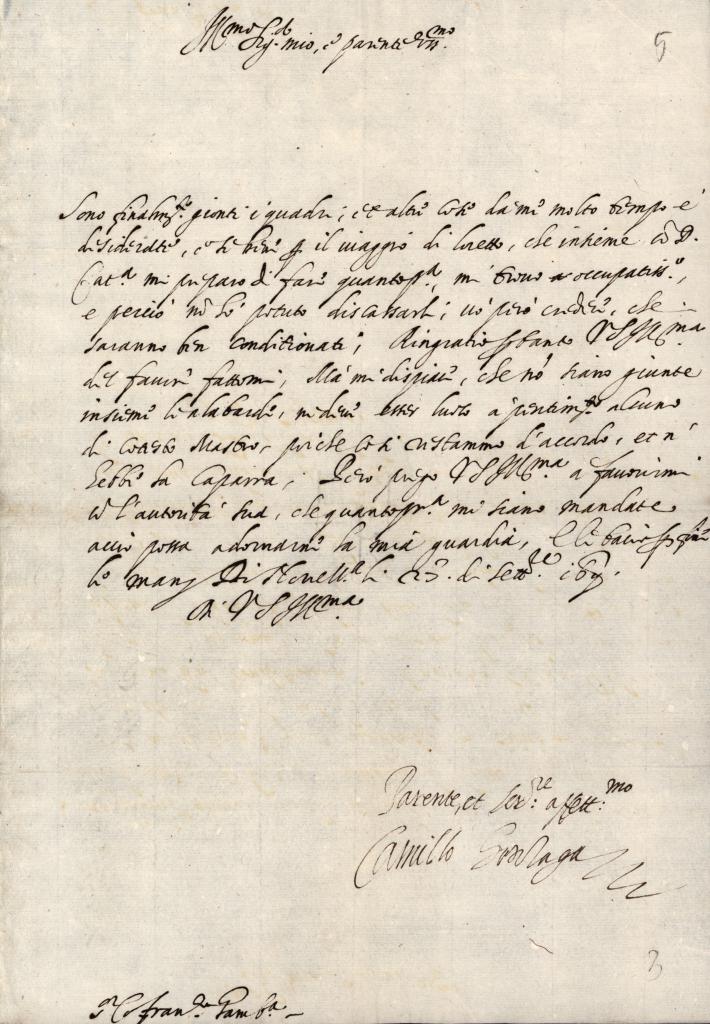 Ill.mo Sig.r mio, e parente oss.mo
5
Sono finalm.te gionti i quadri, et altre cose da me molto tempo è
desiderate, e se bene p il viaggio di loreto, che insieme cō D.
Cat.a mi preparo di fare quantopr.a, mi trovo occupatiss.o,
e perciò nō hò potuto discassarli, vò però credere, che
saranno ben conditionati, Ringratio p tanto VS Ill.ma
del favore fattomi, Mà mi dispiace, che nō siano giunte
insieme le alabarde, ne deve esser luoto a pentim.to alcuno
di cotesto Mastro, poiche così restammo d'accordo, et n'
hebbe la Caparra, Però prego VS Ill.ma a favorirmi
cō l'autorità sua, che quantopr.a mi siano mandate
acciò possa adornarne la mia guardia, E le bacio p fine
le mani Di Novell.a li 23. di Sett.re
Di VS Ill.ma
Parente, et Ser.re affett.mo
Camillo Gonzaga
3
S.r Co. fran.co Gamb.a